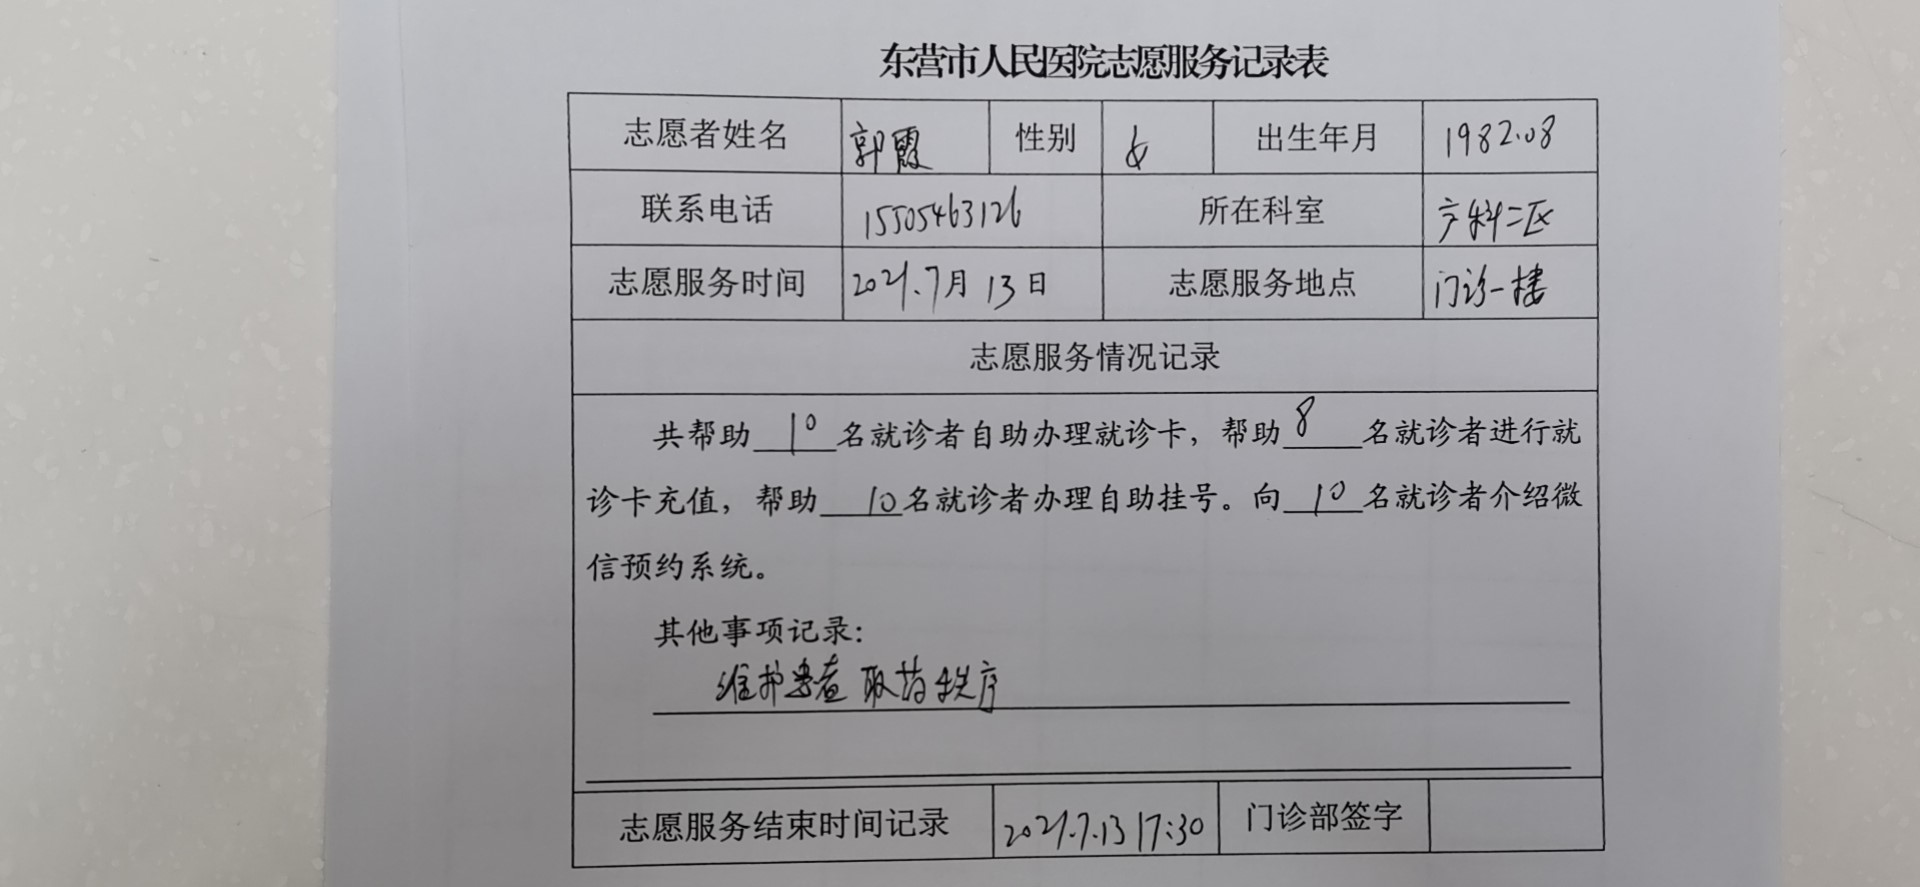 东营市人民医院志愿服务记录表
志愿者姓名 郭霞 性别 女 出生年月 1982.08
联系电话 15505463126 所在科室 产科二区
志愿服务时间 2021.7月13日 志愿服务地点 门诊一楼
志愿服务情况记录
共帮助10名就诊者自助办理就诊卡，帮助8名就诊者进行就
诊卡充值，帮助10名就诊者办理自助挂号。向10名就诊者介绍微
信预约系统。
其他事项记录：
维护患者取药秩序
志愿服务结束时间记录 2021.7.13 17:30 门诊部签字